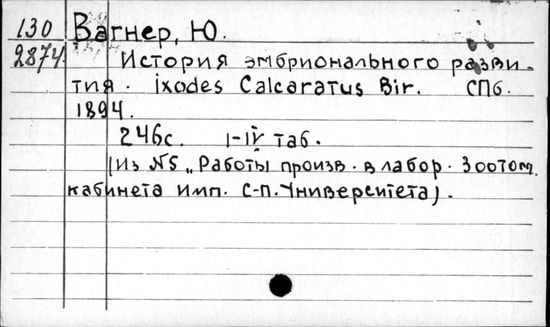 130 Вагнер, Ю.
2874 История эмбрионального разви-
тия. ixodes Calcaratus Bir. СПб.
1894.
246с. I-IV таб.
(Из №5 „Работы произв. в лабор. Зоотом.
кабинета имп. С-П. Университета).